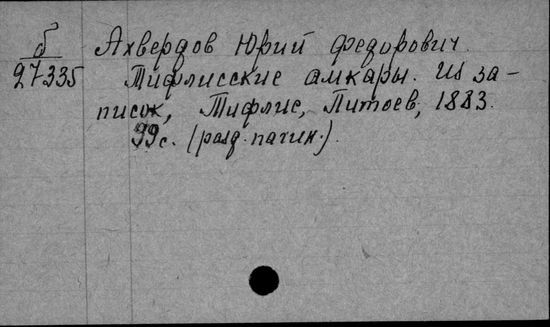 б Ахвердов Юрий Федорович.
27335 Тифлисские амкары. Из за-
писок, Тифлис, Питоев, 1883.
99 с. (разд. пагин.).